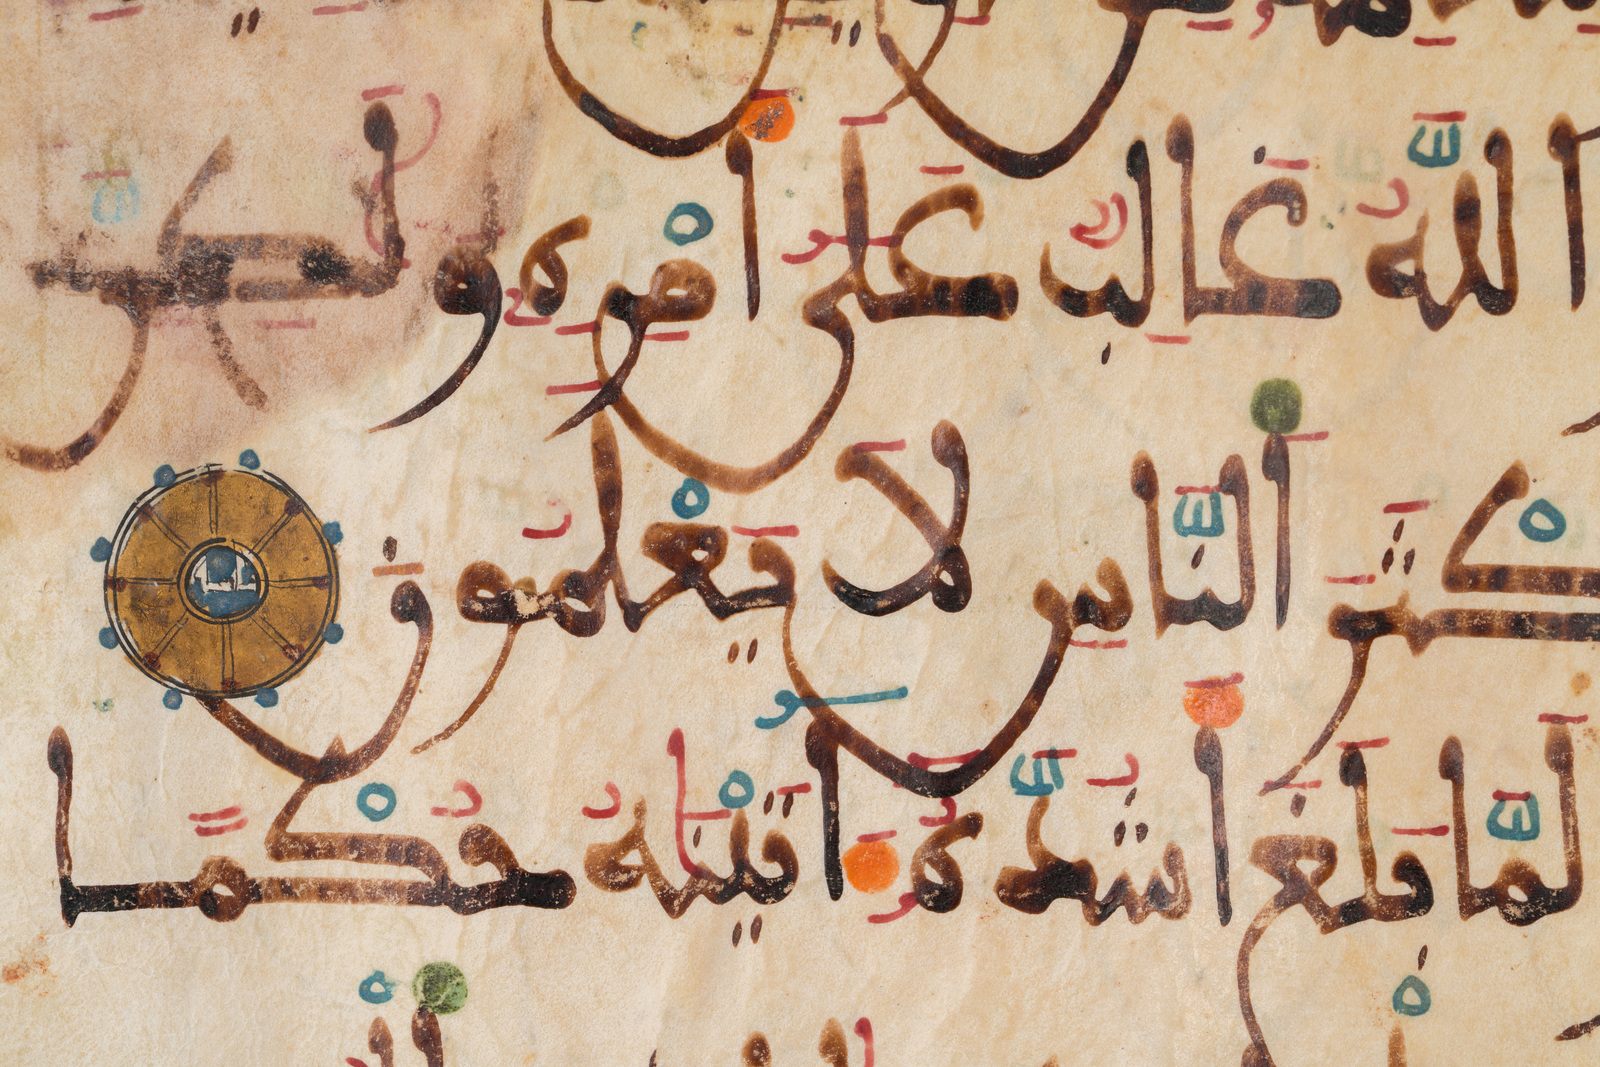 الله غَالِبٌ عَلَىٰ أَمْرِهِ وَلَٰكِنَّ
أَكْثَرَ النَّاسِ لَا يَعْلَمُونَ
لَمَّا بَلَغَ أَشُدَّهُ آتَيْنَٰهُ حُكْمًا